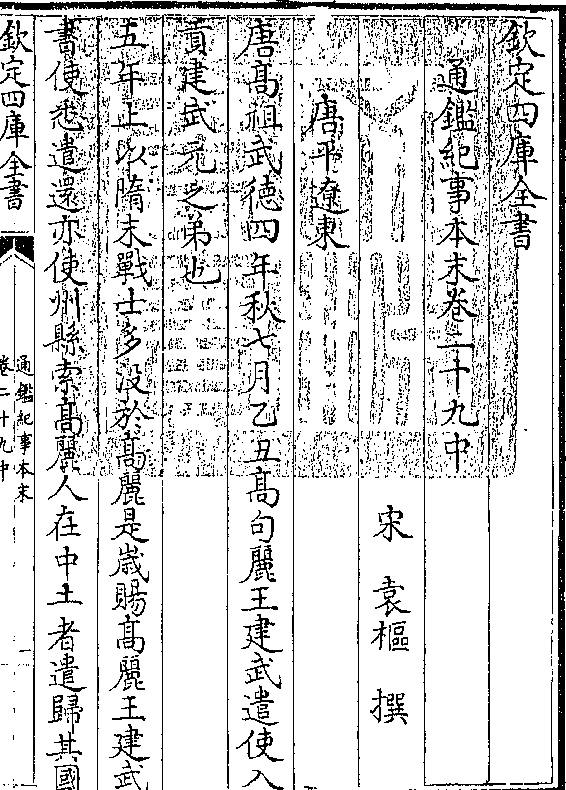 欽定四庫全書
通鑑紀事本末卷二十九中
宋 袁樞 撰
唐平遼東
唐髙祖武徳四年秋七月乙丑髙句麗王建武遣使入
貢建武元之弟也
五年上以隋末戰士多没於髙麗是歲賜髙麗王建武
書使悉遣還亦使州縣索髙麗人在中土者遣歸其國
欽定四庫全書
通鑑紀事本末
卷二十九中